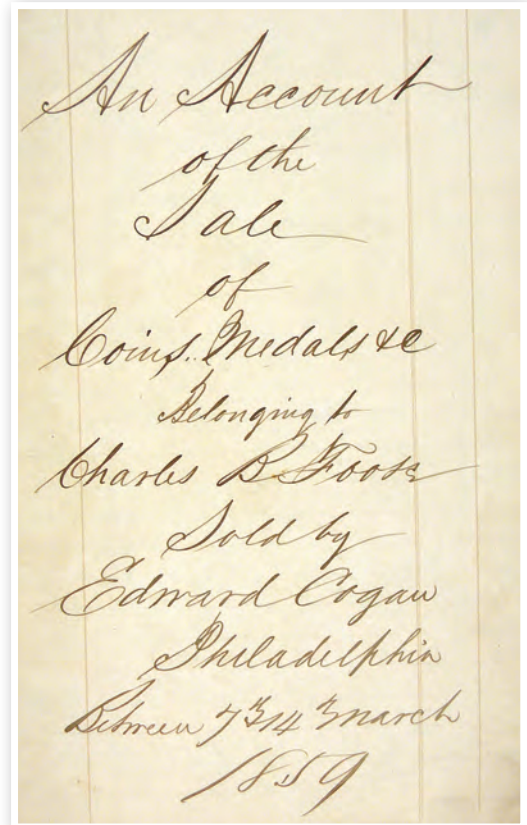 An Account
of the
Sale
of
Coins. Medals &c
Belonging to
Charles B Foote
Sold by
Edward Cogan
Philadelphia
Between 7th & 14th March
1859